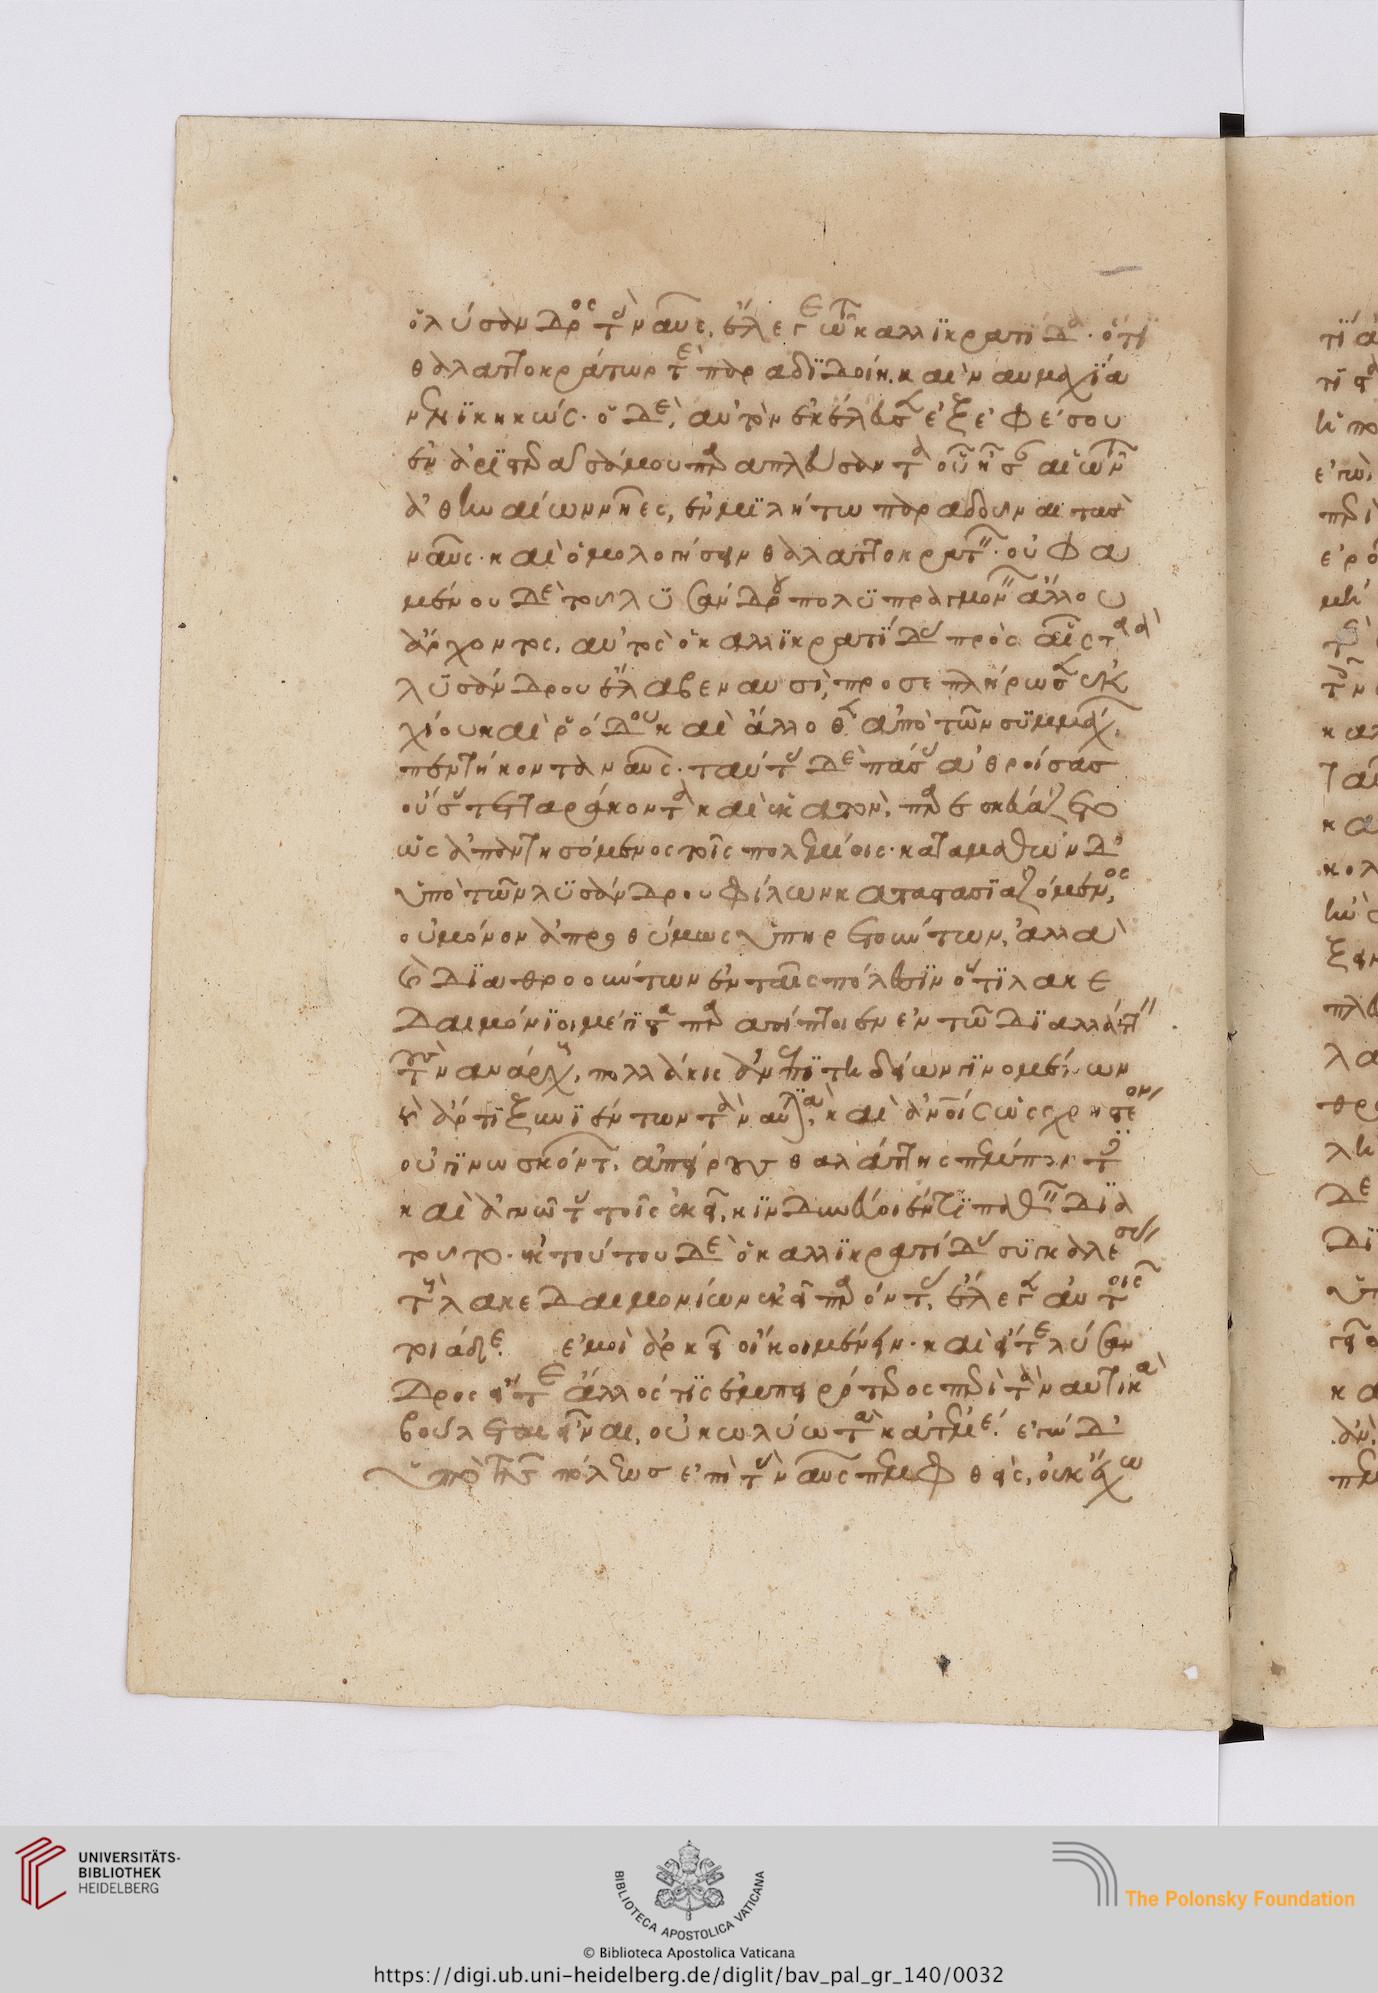 ὁ λύσανδρος τὰς ναῦς, ἔλεγε τῷ καλλϊκρατίδα· ὅτϊ
θαλαττοκράτωρ τὲ παραδϊδοίη. καὶ ναυμαχϊα
νενϊκηκώς· ὁ δὲ, αὐτὸν ἐκέλευσεν ἐξ ἐφέσου
ἐν ἀρϊστερᾶ σάμου παραπλεύσαντα οὗ ἦσαν αἱ τῶν
ἀθηναίων νῆες, ἐν μϊλήτω παραδοῦναι τὰς
ναῦς· καὶ ὁμολογήσειν θαλαττοκρατεῖν· οὐ φα
μένου δὲ τοῦ λϋσάνδρου πολϋπραγμονεῖν ἄλλου
ἄρχοντος, αὐτὸς ὁ καλλϊκρατίδας πρὸς αἷς παρὰ
λϋσάνδρου ἔλαβε ναυσὶ, προσεπλήρωσεν ἐκ
χίου καὶ ῥόδου καὶ ἄλλοθεν ἀπὸ τῶν συμμάχων
πεντήκοντα ναῦς· ταύτας δὲ πάσας ἀθροίσας
οὔσας τετταράκοντα καὶ ἑκατὸν, παρεσκευάζετο
ὡς ἀπαντησόμενος τοῖς πολεμίοις· καταμαθὼν δ'
ὑπὸ τῶν λϋσάνδρου φίλων καταστασϊαζόμενος,
οὐ μόνον ἀπροθύμως ὑπηρετούντων, ἀλλὰ
καὶ διαθροούντων ἐν ταῖς πόλεσϊν ὅτϊ λακε
δαιμόνϊοι μέγϊστα παραπίπτοιεν ἐν τῶ δϊαλλάττειν
τοὺς ναυάρχους, πολλάκις ἀνεπϊτηδείων γϊνομένων
καὶ ἄρτϊ ξυνϊέντων τὰ ναυτϊκὰ, καὶ ἀνθρώποις ὡς χρηστέον
οὐ γϊνωσκόντων, ἀπείρους θαλάττης πέμποντες
καὶ ἀγνῶτας τοῖς ἐκεῖ, κϊνδυνεύοιέν τϊ παθεῖν δϊὰ
τοῦτο· ἐκ τούτου δὲ ὁ καλλϊκρατίδας συγκαλέσας
τοὺς λακεδαιμονίων ἐκεῖ παρόντας, ἔλεγεν αὐτοῖς
τοιάδε· ἐμοὶ ἀρκεῖ οἴκοι μένειν· καὶ εἴτε λύσαν
δρος εἴτε ἄλλος τϊς ἐμπειρότερος περὶ τὰ ναυτικὰ
βούλεται εἶναι, οὐ κωλύω τὸ κατ' ἐμέ· ἐγὼ δ'
ὑπὸ τῆς πόλεως ἐπὶ τὰς ναῦς πεμφθεὶς, οὐκ ἔχω
UNIVERSITÄTS-
BIBLIOTHEK
HEIDELBERG
BIBLIOTECA APOSTOLICA VATICANA
The Polonsky Foundation
© Biblioteca Apostolica Vaticana
https://digi.ub.uni-heidelberg.de/diglit/bav_pal_gr_140/0032